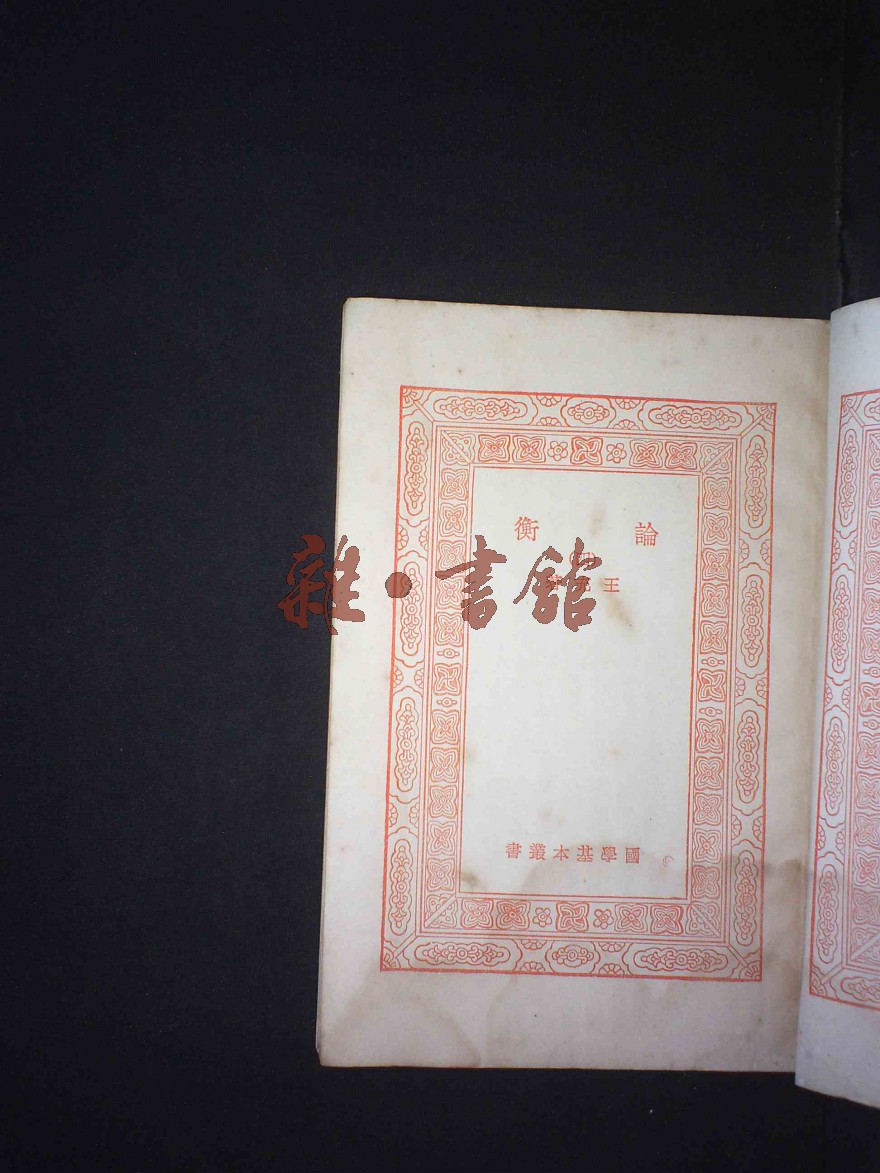 論衡
王充著
國學基本叢書
雜·書館